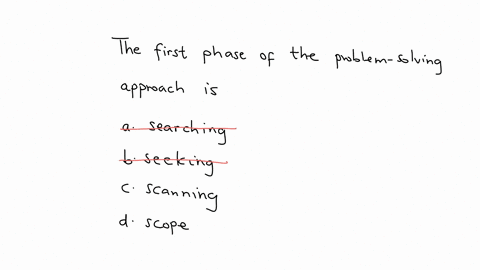 The first phase of the problem-solving
approach is
a. searching
b. seeking
c. scanning
d. scope